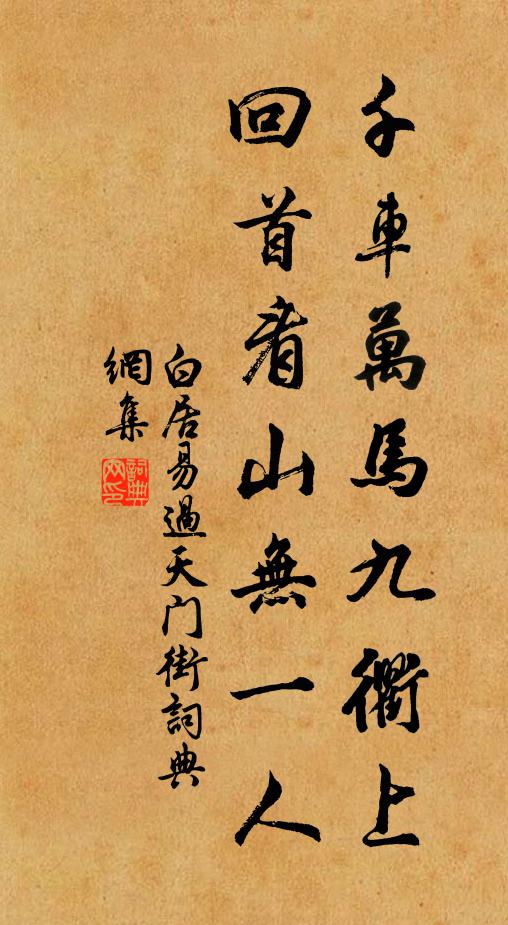 千車萬馬九衢上
回首看山無一人
白居易過天门街詞典
網集
詞典
网印